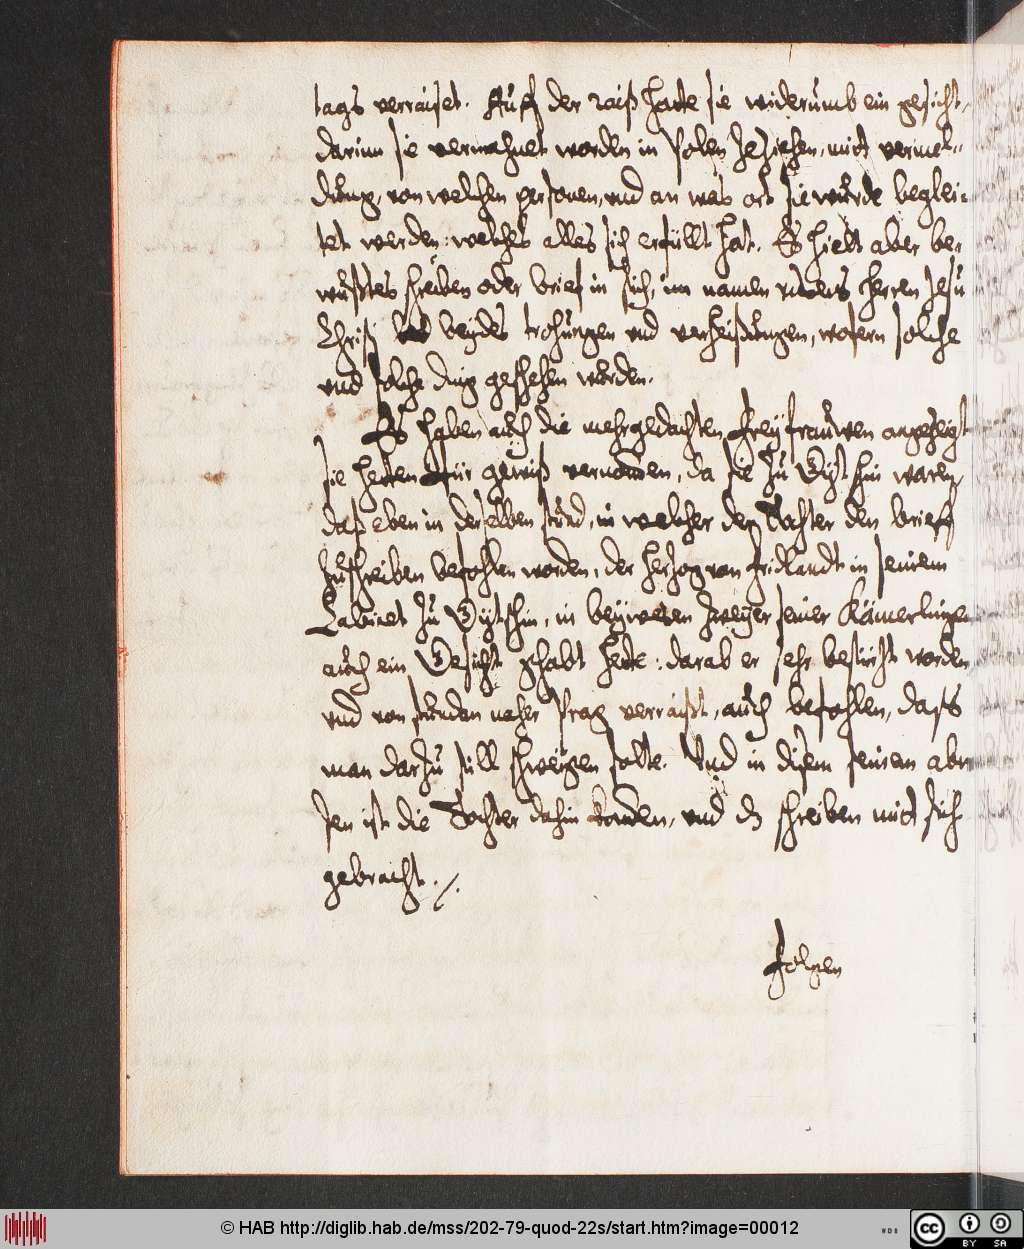 tags verraiset. Auff der raiß hatte sie widerumb ein gesicht,
darinn sie vermahnet worden in Polen zeziehen, mit vermel-
dung, von welchen personen, vnd an was ort sie wurde beglei-
tet werden: welches alles sich erfüllt hat. Es hielt aber be-
wußtes schreiben oder brief in sich, im namen vnsers Herren Jesu
Christi beydes trohungen vnd verheißungen, wofern solche
vnd solche ding geschehen wurden.
Es haben auch die mehrgedachten Freyfrauwen angezeigt
sie hetten für gewiß vernommen, da sie zu Gytschin waren,
daß eben in derselben stund, in welcher der Tochter den brieff
zuschreiben befohlen worden, der Hertzog von Fridlandt in seinem
Cabinet zu Gytschin, in beywesen zweyer seiner Kämerlingen
auch ein Gesicht gehabt hette: darab er sehr bestürtzt worden
vnd von stunden naher Prag verraißt, auch befohlen, dass
man darzu still schweigen solte. Vnd in disem seinem abwe-
sen ist die Tochter dahin komen, vnd dz schreiben mit sich
gebracht ./.
Folgen
© HAB http://diglib.hab.de/mss/202-79-quod-22s/start.htm?image=00012
WDB
cc BY SA